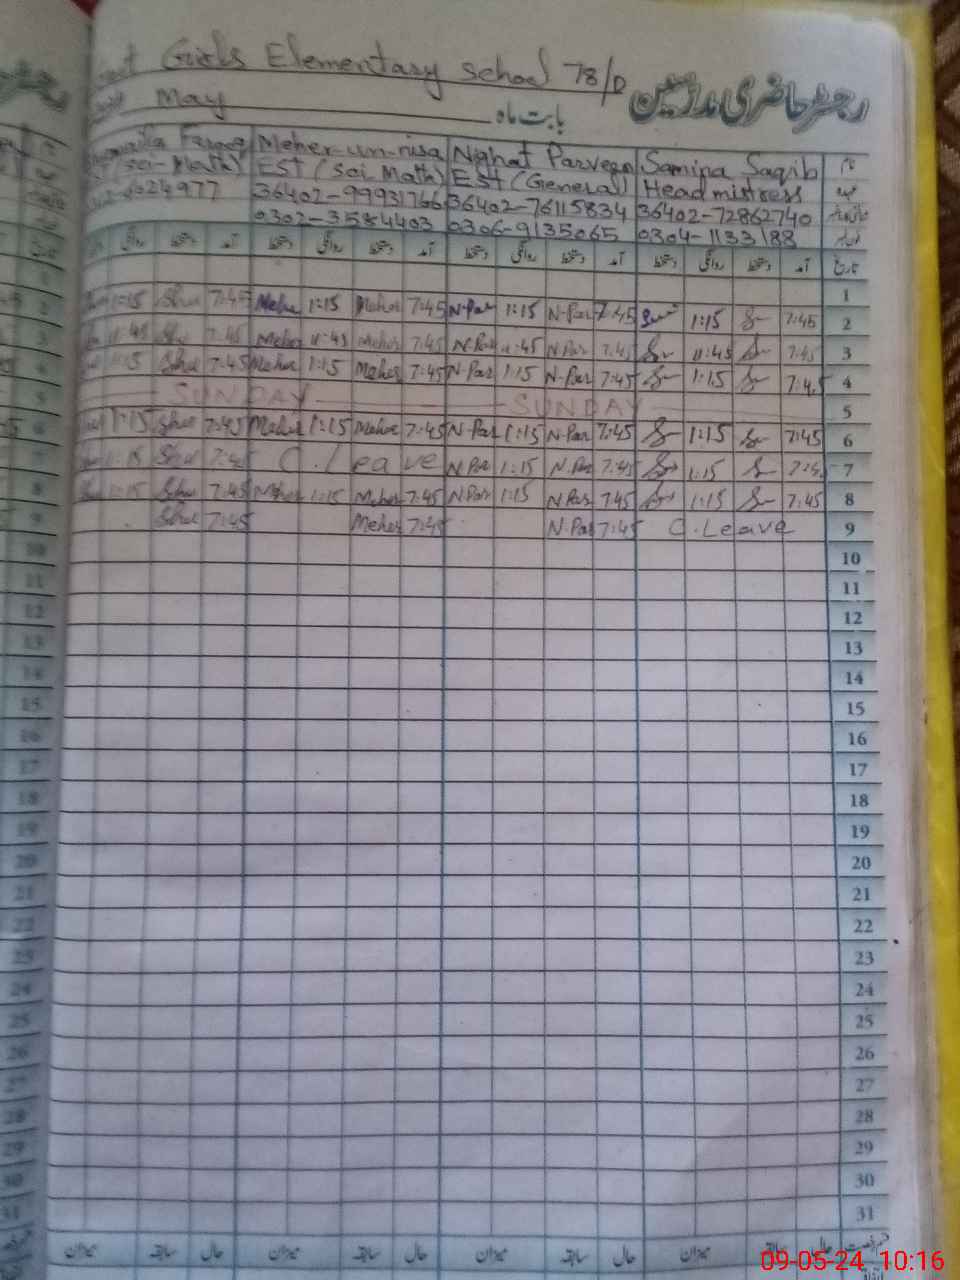 Girls Elementary School 78/D
رجسٹر حاضری مدرسین
May
بابت ماہ
Meher-un-nisa Nighat Parveen Samina Saqib نام
(Sci-Math) EST (Sci Math) EST (General) Headmistress عہدہ
36402-99931766 36402-76115834 36402-72862740
0302-3584403 0306-9135065 0304-1133188
روانگی دستخط آمد دستخط روانگی دستخط آمد دستخط روانگی دستخط آمد دستخط روانگی دستخط آمد تاریخ
1
1:15 Shu 7:45 Meher 1:15 Meher 7:45 N-Par 1:15 N-Par 7:45 1:15 7:45 2
11:45 Shu 7:45 Meher 11:45 Meher 7:45 N-Par 11:45 N-Par 7:45 11:45 7:45 3
1:15 Shu 7:45 Meher 1:15 Meher 7:45 N-Par 1:15 N-Par 7:45 1:15 7:45 4
SUNDAY SUNDAY 5
1:15 Shu 7:45 Meher 1:15 Meher 7:45 N-Par 1:15 N-Par 7:45 1:15 7:45 6
1:15 Shu 7:45 C.Leave N Par 1:15 N.Par 7:45 1:15 7:45 7
1:15 Shu 7:45 Meher 1:15 Meher 7:45 N Par 1:15 N Par 7:45 1:15 7:45 8
Shu 7:45 Meher 7:45 N-Par 7:45 C.Leave 9
10
11
12
13
14
15
16
17
18
19
20
21
22
23
24
25
26
27
28
29
30
31
میزان سابقہ حال میزان سابقہ حال میزان سابقہ حال میزان سابقہ حال
09-05-24 10:16